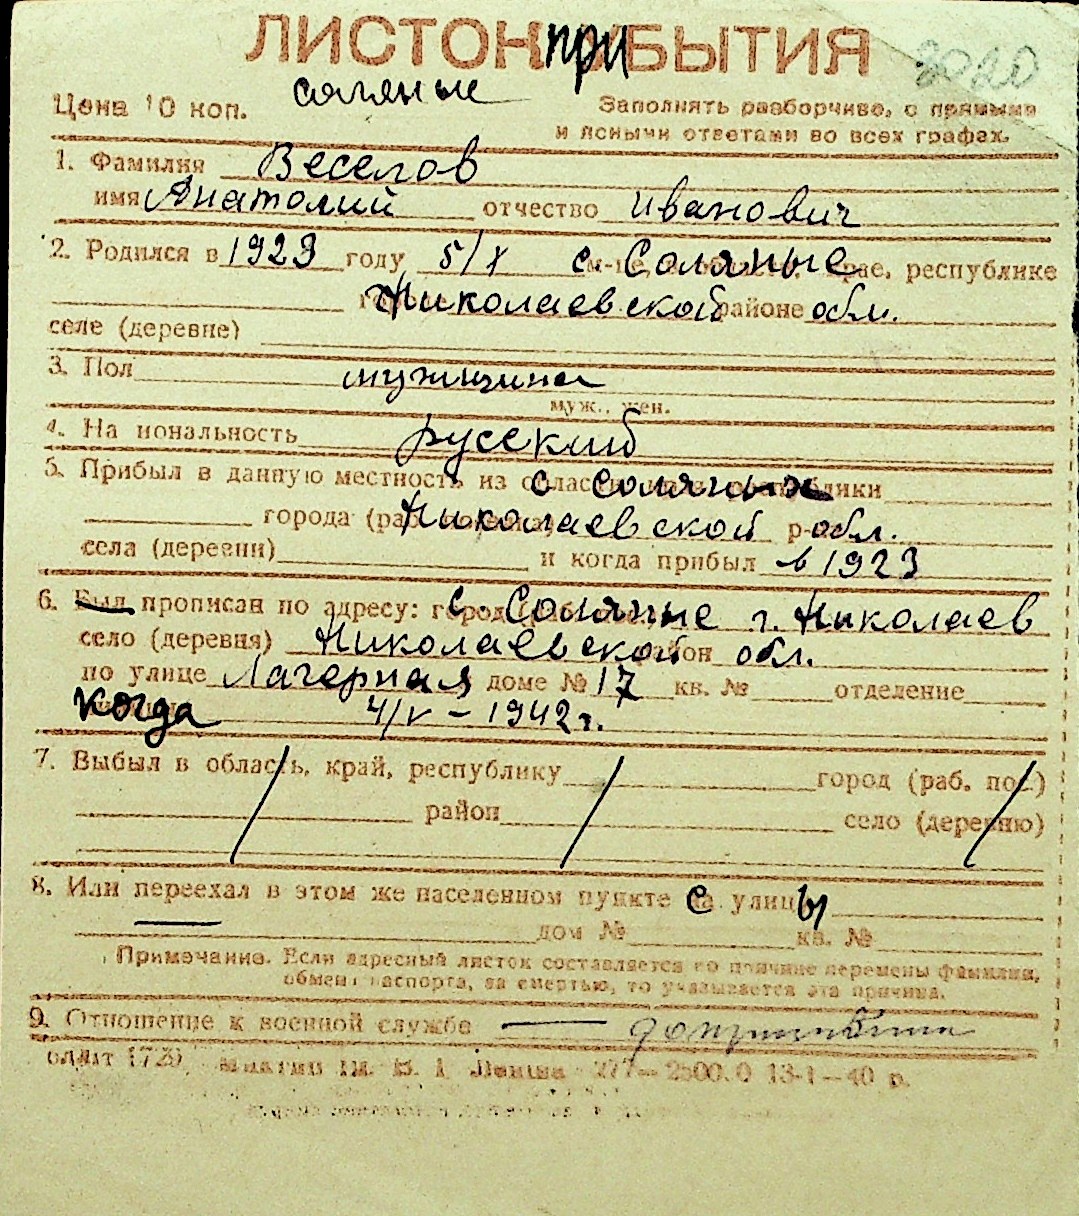 ЛИСТОК ПРИБЫТИЯ
3020
соляные
Цена 10 коп.
Заполнять разборчиво, с прямыми
и ясными ответами во всех графах.
1. Фамилия Веселов
имя Анатолий отчество Иванович
2. Родился в 1923 году 5/X с. Соляные крае, республике
Николаевской районе обл.
селе (деревне)
3. Пол мужчина
муж., жен.
4. Национальность русский
5. Прибыл в данную местность из области с Соляных республики
города (раб. Николаевской р-обл.
села (деревни) и когда прибыл в 1923
6. Был прописан по адресу: город с. Соляные г. Николаев
село (деревня) Николаевской район обл.
по улице Лагерная доме № 17 кв. № отделение
когда 4/V - 1942 г.
7. Выбыл в область, край, республику город (раб. пос.)
район село (деревню)
8. Или переехал в этом же населенном пункте с улицы
дом № кв. №
Примечание. Если адресный листок составляется по причине перемены фамилии,
обмена паспорта, за смертью, то указывается эта причина.
9. Отношение к военной службе — допризывник
им. В. І. Леніна 277—2500.0 13-1—40 р.